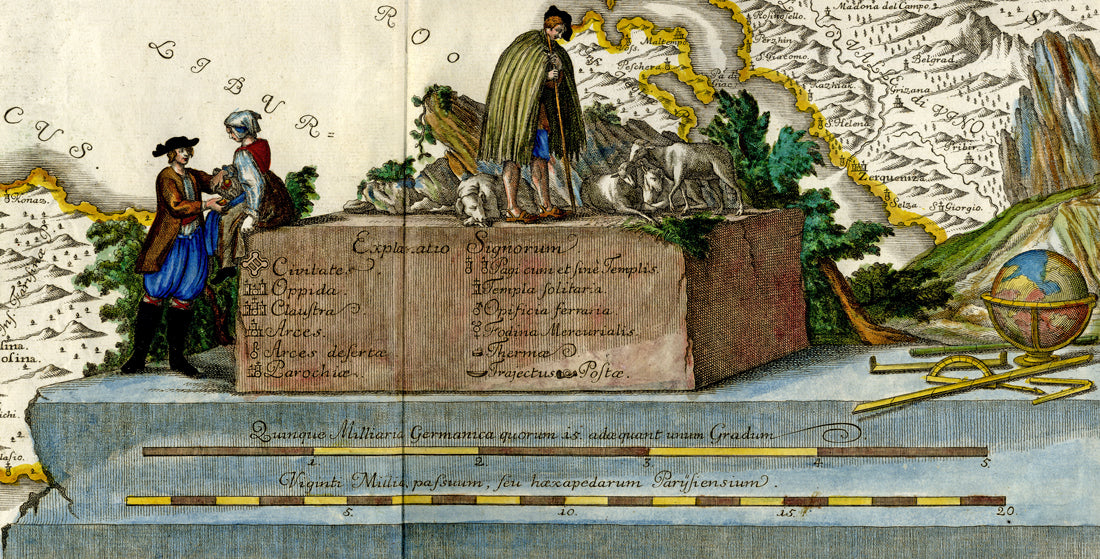 R
O
LIBUR=
CUS
Voss.
Maltempo
Peschera
Rosinosello.
Perzhin
S. Giacomo.
Madona del Campo.
Belgrad.
Grizana
di VINO
Kazhiak
S. Helena
Priber
Zerqueniza
Selza
S. Giorgio.
S
Ronaz.
osina.
Explanatio Signorum
Civitates.
Oppida.
Claustra
Arces.
Arces desertæ
Parochiæ.
Pagi cum et sine Templis.
Templa solitaria.
Opificia ferraria.
Fodina Mercurialis.
Thermæ
Trajectus Postæ.
Quinque Milliaria Germanica quorum 15. adæquant unum Gradum
1 2 3 4 5.
Viginti Millia passuum, seu hæxapedarum Parijsiensium.
5. 10. 15. 20